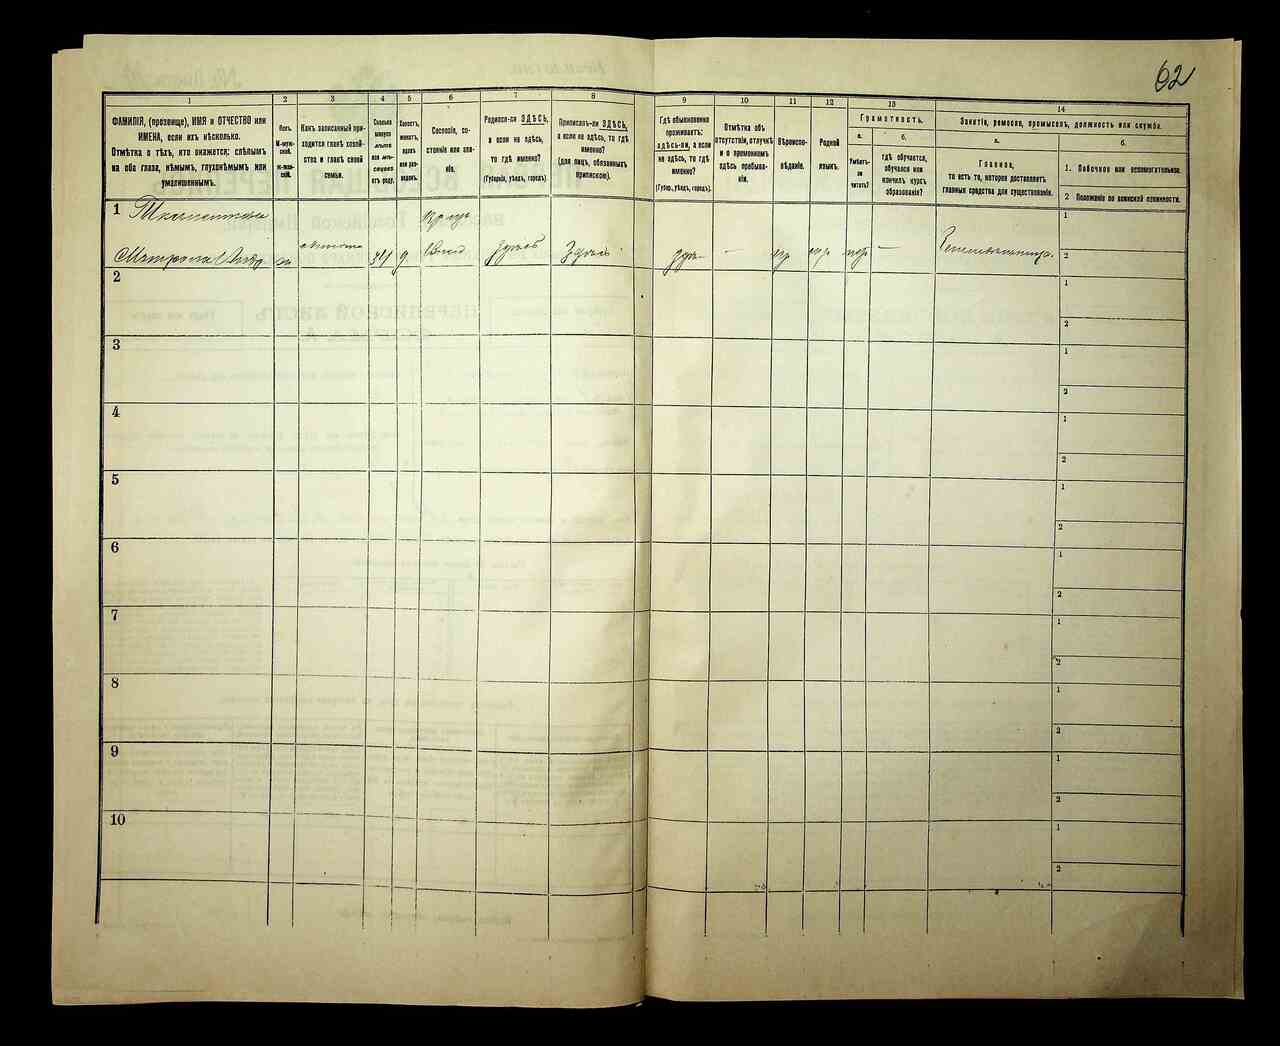 62
1
2
3
4
5
6
7
8
9
10
11
12
13
14
ФАМИЛІЯ, (прозвище), ИМЯ и ОТЧЕСТВО или
ИМЕНА, если ихъ нѣсколько.
Отмѣтка о тѣхъ, кто окажется: слѣпымъ
на оба глаза, нѣмымъ, глухонѣмымъ или
умалишеннымъ.
Полъ.
М-муж-
ской.
Ж-жен-
скій.
Какъ записанный при-
ходится главѣ хозяй-
ства и главѣ своей
семьи.
Сколько
минуло
лѣтъ
или мѣ-
сяцевъ
отъ роду.
Холостъ,
женатъ,
вдовъ
или раз-
веденъ.
Сословіе, со-
стояніе или зва-
ніе.
Родился-ли ЗДѢСЬ,
а если не здѣсь,
то гдѣ именно?
(Губернія, уѣздъ, городъ).
Приписанъ-ли ЗДѢСЬ,
а если не здѣсь, то гдѣ
именно?
(для лицъ, обязанныхъ
припискою).
Гдѣ обыкновенно
проживаетъ:
здѣсь-ли, а если
не здѣсь, то гдѣ
именно?
(Губер., уѣздъ, городъ).
Отмѣтка объ
отсутствіи, отлучкѣ
и о временномъ
здѣсь пребыва-
ніи.
Вѣроиспо-
вѣданіе.
Родной
языкъ.
Грамотность.
а.
Умѣетъ-
ли
читать?
б.
гдѣ обучается,
обучался или
кончилъ курсъ
образованія?
Занятіе, ремесло, промыселъ, должность или служба.
а.
Главное,
то есть то, которое доставляетъ
главныя средства для существованія.
б.
1. Побочное или вспомогательное.
2 Положеніе по воинской повинности.
1
1
Здѣсь
Здѣсь
2
2
1
2
3
1
2
4
1
2
5
1
2
6
1
2
7
1
2
8
1
2
9
1
2
10
1
2